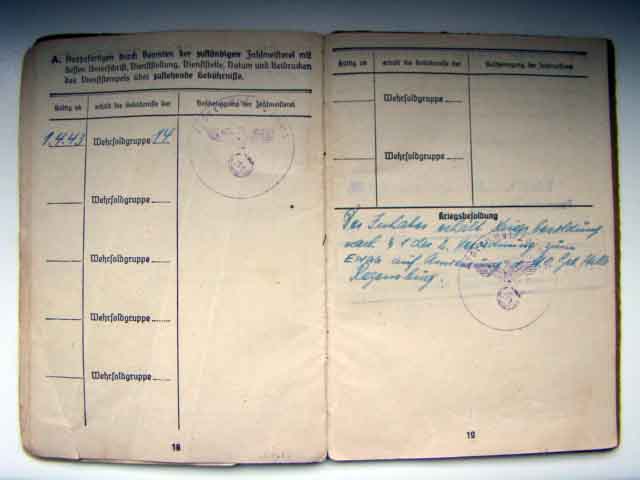 A. Auszufertigen durch Beamten der zuständigen Zahlmeisterei mit
dessen Unterschrift, Dienststellung, Dienststelle, Datum und Beidrucken
des Dienststempels über zustehende Gebührnisse.
Gültig ab erhält die Gebührnisse der Bescheinigung der Zahlmeisterei
1.4.43 Wehrsoldgruppe 14
Wehrsoldgruppe
Wehrsoldgruppe
Wehrsoldgruppe
Wehrsoldgruppe
18
Gültig ab erhält die Gebührnisse der Bescheinigung der Zahlmeisterei
Wehrsoldgruppe
Wehrsoldgruppe
Kriegsbesoldung
Der Inhaber erhält Kriegsbesoldung
nach § 1 der 2. Verordnung zum
EWGG auf Anweisung
Regensburg.
19